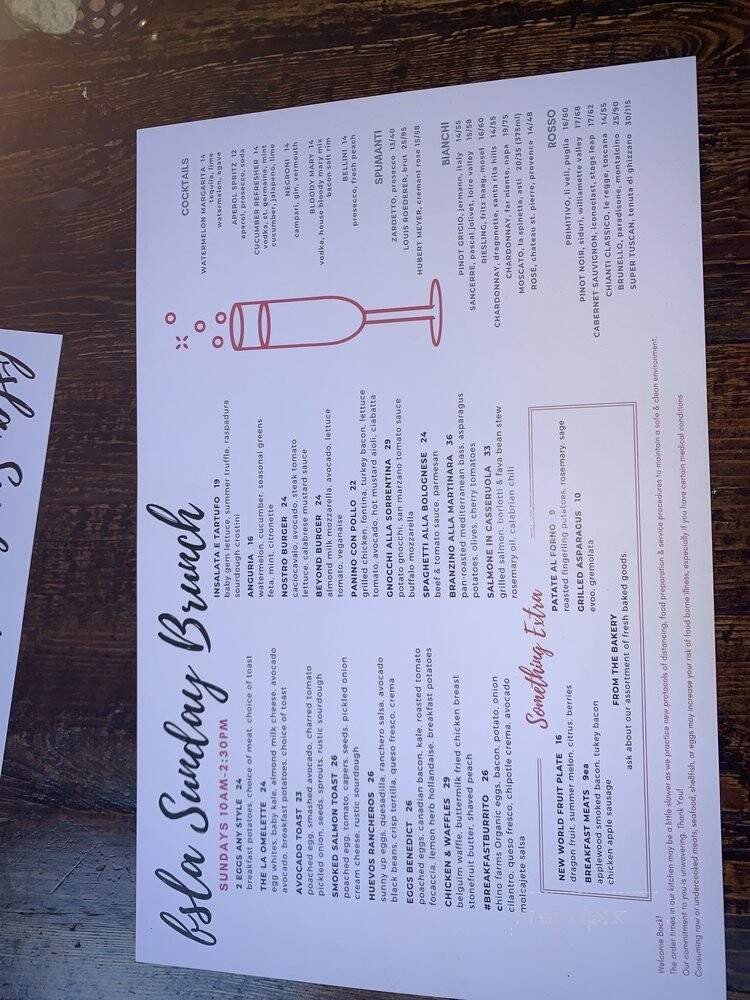 bsla Sunday Brunch
SUNDAYS 10AM-2:30PM
2 EGGS ANY STYLE 24
breakfast potatoes, choice of meat, choice of toast
THE LA OMELETTE 24
egg whites, baby kale, almond milk cheese, avocado
avocado, breakfast potatoes, choice of toast
AVOCADO TOAST 23
poached egg, smashed avocado, charred tomato
pickled onion, seeds, sprouts, rustic sourdough
SMOKED SALMON TOAST 26
poached egg, tomato, capers, seeds, pickled onion
cream cheese, rustic sourdough
HUEVOS RANCHEROS 26
sunny up eggs, quesadilla, ranchero salsa, avocado
black beans, crisp tortilla, queso fresco, crema
EGGS BENEDICT 26
poached eggs, canadian bacon, kale, roasted tomato
focaccia, lemon herb hollandaise, breakfast potatoes
CHICKEN & WAFFLES 29
belguim waffle, buttermilk fried chicken breast
stonefruit butter, shaved peach
#BREAKFASTBURRITO 26
chino farms Organic eggs, bacon, potato, onion
cilantro, queso fresco, chipotle crema, avocado
molcajete salsa
INSALATA E TARTUFO 19
baby gem lettuce, summer truffle, raspadura
sourdough crostini
ANGURIA 16
watermelon, cucumber, seasonal greens
feta, mint, citronette
NOSTRO BURGER 24
caciocavalo, avocado, steak tomato
lettuce, calabrese mustard sauce
BEYOND BURGER 24
almond milk mozzarella, avocado, lettuce
tomato, veganaise
PANINO CON POLLO 22
grilled chicken, fontina, turkey bacon, lettuce
tomato, avocado, hot mustard aioli, ciabatta
GNOCCHI ALLA SORRENTINA 29
potato gnocchi, san marzano tomato sauce
buffalo mozzarella
SPAGHETTI ALLA BOLOGNESE 24
beef & tomato sauce, parmesan
BRANZINO ALLA MARTINARA 36
pan-roasted mediterranean bass, asparagus
potatoes, olives, cherry tomatoes
SALMONE IN CASSERUOLA 33
grilled salmon, borlotti & fava bean stew
rosemary oil, calabrian chili
Something Extra
NEW WORLD FRUIT PLATE 16
dragon fruit, summer melon, citrus, berries
BREAKFAST MEATS 9ea
applewood smoked bacon, tukey bacon
chicken apple sausage
PATATE AL FORNO 9
roasted fingerling potatoes, rosemary, sage
GRILLED ASPARAGUS 10
evoo, gremolata
FROM THE BAKERY
ask about our assortment of fresh baked goods.
COCKTAILS
WATERMELON MARGARITA 14
tequila, lime
watermelon, agave
APEROL SPRITZ 12
aperol, prosecco, soda
CUCUMBER REFRESHER 14
vodka, st. germaine, mint
cucumber, jalapeno, lime
NEGRONI 14
campari, gin, vermouth
BLOODY MARY 14
vodka, house bloody mary mix
bacon salt rim
BELLINI 14
prosecco, fresh peach
SPUMANTI
ZARDETTO, prosecco 13/40
LOUIS ROEDERER, brut 25/95
HUBERT MEYER, cremant rose 15/58
BIANCHI
PINOT GRIGIO, jermann, italy 14/55
SANCERRE, pascal jolivet, loire valley 15/58
RIESLING, fritz haag, mosel 16/60
CHARDONNAY, dragonette, santa rita hills 14/55
CHARDONNAY, far niente, napa 19/75
MOSCATO, la spinetta, asti 20/35 (375ml)
ROSÉ, chateau st. pierre, provence 14/48
ROSSO
PRIMITIVO, li veli, puglia 16/60
PINOT NOIR, siduri, willamette valley 17/68
CABERNET SAUVIGNON, iconoclast, stags leap 17/62
CHIANTI CLASSICO, le regge, toscana 14/55
BRUNELLO, paradisone, montalcino 25/90
SUPER TUSCAN, tenuta di ghizano 30/115
Welcome Back!
The order times in our kitchen may be a little slower as we practice new protocols of distancing, food preparation & service procedures to maintain a safe & clean environment.
Our commitment to you is unwavering. Thank You!
Consuming raw or undercooked meats, seafood, shellfish, or eggs may increase your risk of food borne illness, especially if you have certain medical conditions